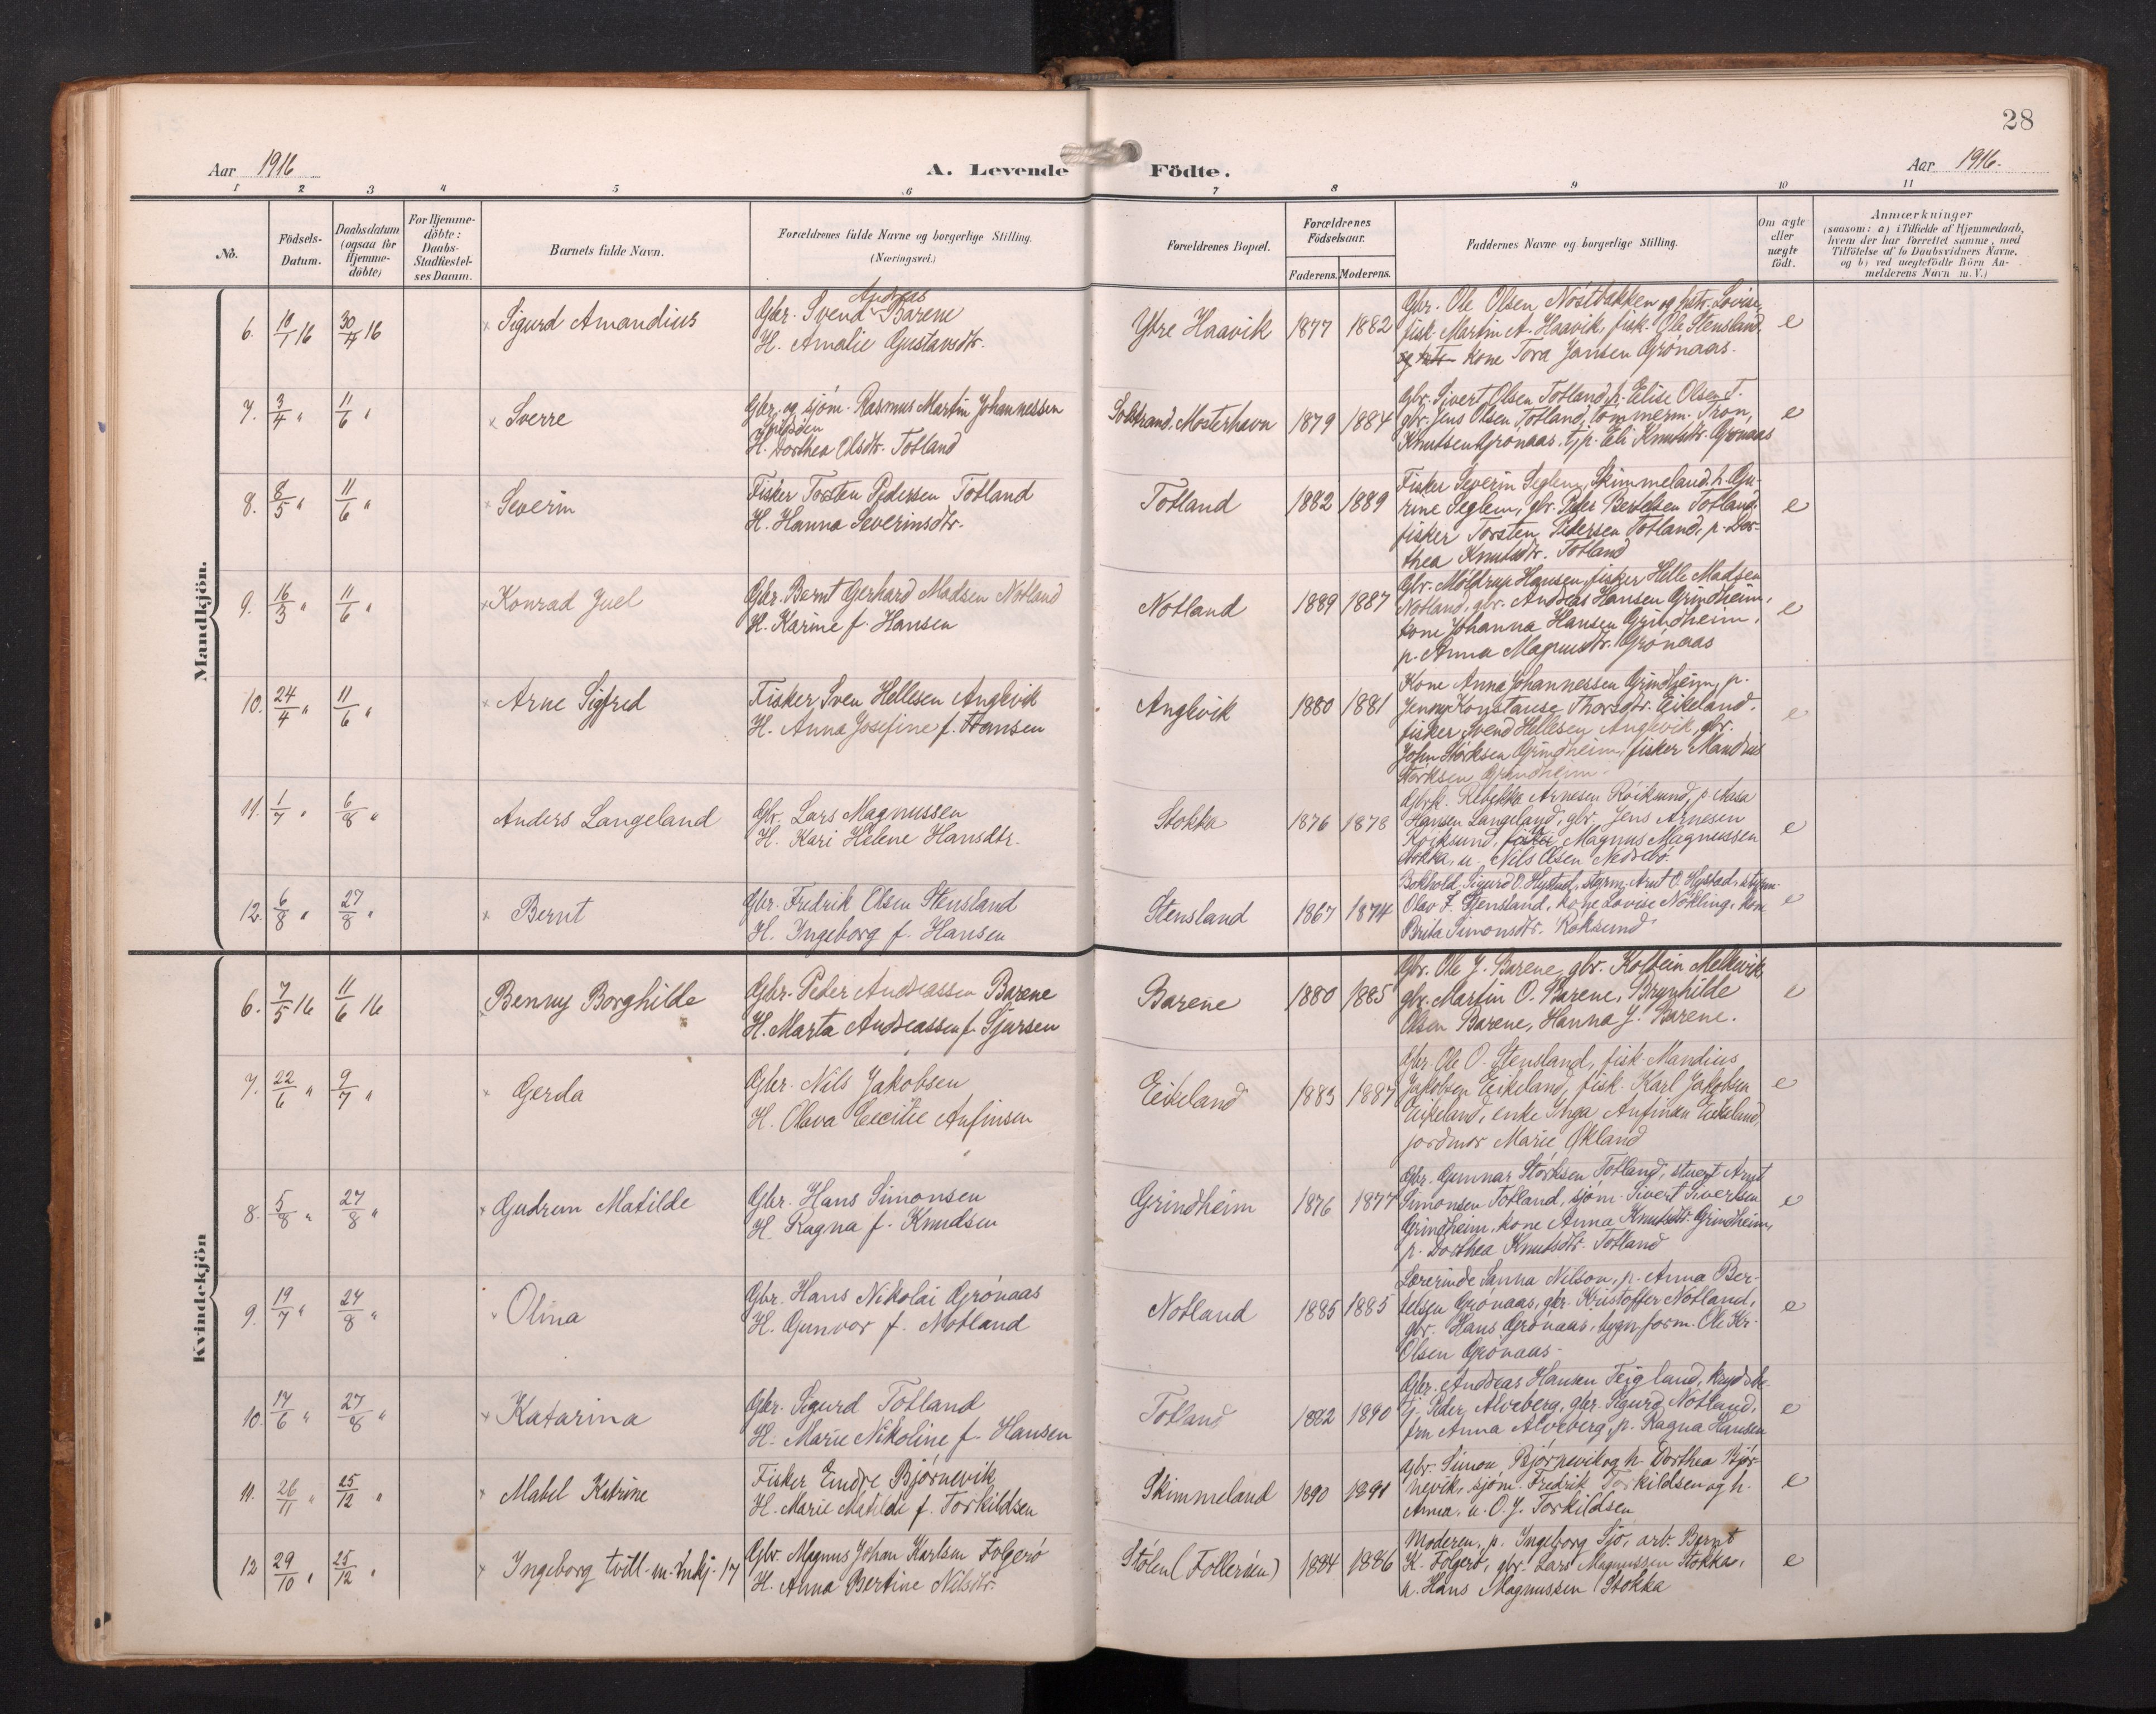 28
Aar 1916 A. Levende Födte. Aar 1916.
1 2 3 4 5 6 7 8 9 10 11
No.
Födsels-Datum.
Daabsdatum (ogsaa for Hjemmedöbte)
For Hjemmedöbte: Daabs-Stadfæstelses Datum.
Barnets fulde Navn.
Forældrenes fulde Navne og borgerlige Stilling.
(Næringsvei.)
Forældrenes Bopæl.
Forældrenes Födselsaar.
Faderens. Moderens.
Faddernes Navne og borgerlige Stilling.
Om ægte eller uægte født.
Anmærkninger
(saasom: a) i Tilfælde af Hjemmedaab,
hvem der har forrettet samme, med
Tilföielse af to Daabsvidners Navne,
og b) ved uægtefödte Börn An-
melderens Navn m. V.)
Mandkjön.
6. 10/1 16 30/4 16 Sigurd Amandius
Gbr. Svend Andreas Barene
H. Amalie Gustavsdtr.
Ytre Haavik 1877 1882
Gbr. Ole Olsen Nöstbakken og hstr. Lovise,
fisk. Martin A. Haavik, fisk. Ole Stensland
kone Tora Jansen Grönaas.
e
7. 3/4 " 11/6 " Sverre
Gbr. og sjöm. Rasmus Martin Johannessen
H. Dorthea Olsdtr. Totland
Solstrand, Mosterhavn 1879 1884
Gbr. Sivert Olsen Totland, h. Elise Olsen T.
gbr. Jens Olsen Totland, tömmerm. Tron
Knutsen Grönaas, tjp. Eli Knutsdtr. Grönaas
e
8. 8/5 " 11/6 " Severin
Fisker Torsten Pedersen Totland
H. Hanna Severinsdtr.
Totland 1882 1889
Fisker Severin Seglem, Skimmeland, h. Gu-
rine Seglem, gbr. Peder Bertelsen Totland,
fisker Torsten Pedersen Totland, p. Dor-
thea Knutsdtr. Totland
e
9. 16/3 " 11/6 " Konrad Juel
Gbr. Bernt Gerhard Madsen Notland
H. Karine f. Hansen
Notland 1889 1887
Gbr. Möldrup Hansen, fisker Helle Madsen
Notland, gbr. Andreas Hansen Grindheim,
kone Johanna Hansen Grindheim,
p. Anna Magnusdtr. Grönaas
e
10. 24/4 " 11/6 " Arne Sigfred
Fisker Sven Hellesen Anglevik
H. Anna Josefine f. Hansen
Anglevik 1880 1881
Kone Anna Johannessen Grindheim, p.
Jenny Konstanse Thorsdtr. Eikeland,
fisker Svend Hellesen Anglevik, gbr.
John Störksen Grindheim, fisker Mandius
Störksen Grindheim.
e
11. 1/7 " 6/8 " Anders Langeland
Gbr. Lars Magnussen
H. Kari Helene Hansdtr.
Stokka 1876 1878
Gbrk. Rebekka Arnesen Röiksund, p. Aasa
Hansen Langeland, gbr. Jens Arnesen
Röiksund, fisker Magnus Magnussen
Stokka, u. Nils Olsen Nedrebö.
e
12. 6/8 " 27/8 " Bernt
Gbr. Fredrik Olsen Stensland
H. Ingeborg f. Hansen
Stensland 1867 1874
Bokhold. Sigurd O. Hystad, styrm. Arnt O. Hystad, styrm.
Olav F. Stensland, kone Lovise Nökling, kone
Brita Simonsdtr. Röksund
e
Kvindekjön
6. 7/5 16 11/6 16 Benny Borghilde
Gbr. Peder Andreassen Barene
H. Marta Andreassen f. Sjursen
Barene 1880 1885
Gbr. Ole J. Barene, gbr. Kolbein Melkevik
gbr. Martin O. Barene, Brynhilde
Olsen Barene, Hanna J. Barene.
e
7. 22/6 " 9/7 " Gerda
Gbr. Nils Jakobsen
H. Olava Cecilie Anfinsen
Eikeland 1883 1887
Gbr. Ole O. Stensland, fisk. Mandius
Jakobsen Eikeland, fisk. Karl Jakobsen
Eikeland, enke Inga Anfinsen Eikeland,
jordmor Marie Økland
e
8. 5/8 " 27/8 " Gudrun Matilde
Gbr. Hans Simonsen
H. Ragna f. Knudsen
Grindheim 1876 1877
Gbr. Gunnar Störksen Totland, stuert Arnt
Simonsen Totland, sjöm. Sivert Sivertsen
Grindheim, kone Anna Knutsdtr. Grindheim,
p. Dorthea Knutsdtr. Totland
e
9. 19/7 " 27/8 " Olina
Gbr. Hans Nikolai Grönaas
H. Gunvor f. Notland
Notland 1885 1885
Lærerinde Sanna Nilson, p. Anna Ber-
telsen Grönaas, gbr. Kristoffer Notland,
gbr. Hans Grönaas, bygn. form. Ole Kr.
Olsen Grönaas.
e
10. 17/6 " 27/8 " Katarina
Gbr. Sigurd Totland
H. Marie Nikoline f. Hansen
Totland 1882 1890
Gbr. Andreas Hansen Teigland,
Peder Alveberg, gbr. Sigurd Notland,
fru Anna Alveberg, p. Ragna Hansen
e
11. 26/11 " 25/12 " Mabel Katrine
Fisker Endre Björnevik
H. Marie Matilde f. Torkildsen
Skimmeland 1890 1891
Gbr. Simon Björnevik og h. Dorthea Björ-
nevik, sjöm. Fredrik Torkildsen og h.
Anna, u. O. J. Torkildsen
e
12 29/10 " 25/12 " Ingeborg tvill. m. 17
Gbr. Magnus Johan Karlsen Folgerö
H. Anna Bertine Nilsdtr.
Stölen (Folleröen) 1884 1886
Moderen, p. Ingeborg Sjo, arb. Bernt
K. Folgerö, gbr. Lars Magnussen Stokka,
u. Hans Magnussen Stokka
e